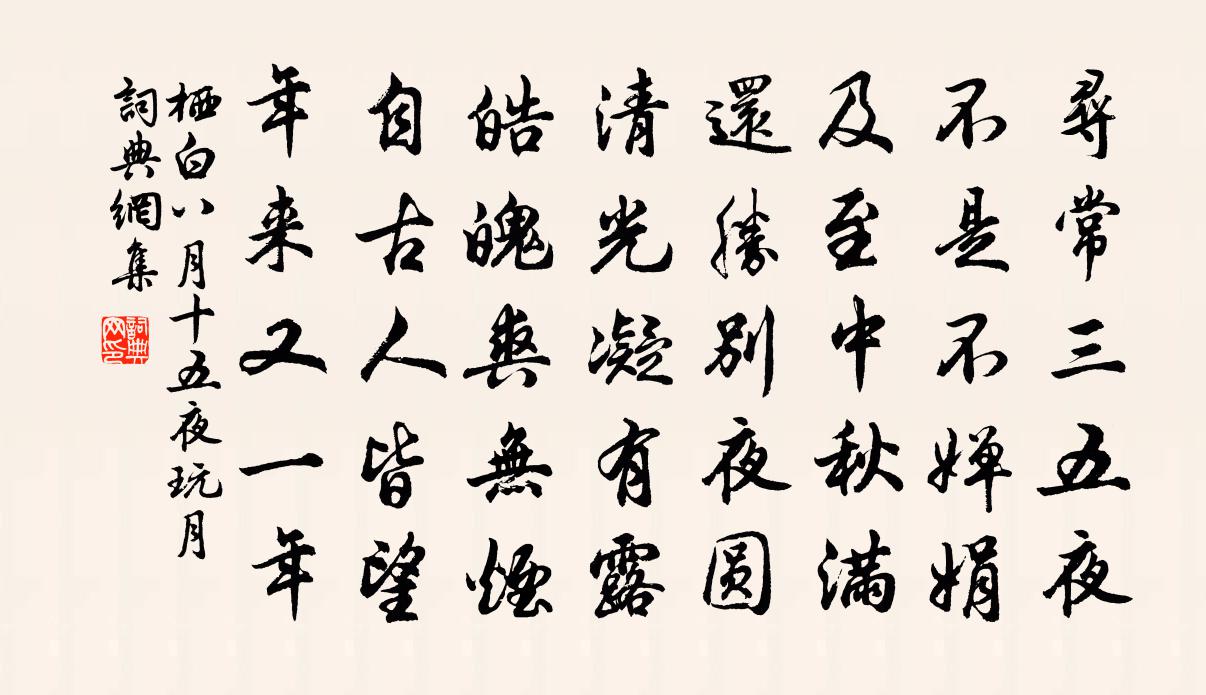 尋常三五夜
不是不嬋娟
及至中秋滿
還勝別夜圓
清光凝有露
皓魄爽無煙
自古人皆望
年来又一年
栖白八月十五夜玩月
詞典網集
詞典网印